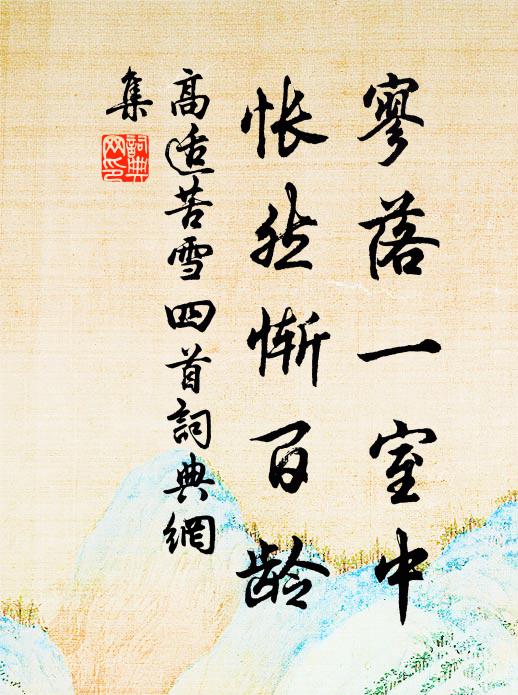 寥落一室中
悵然慚百齡
高適苦雪四首詞典網
集
詞典網印